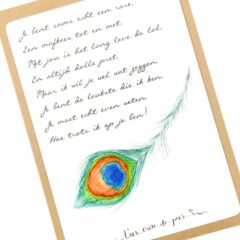 Je bent soms echt een rare.
Een mafkees tot en met.
Met jou is het lang leve de lol.
En altijd dolle pret.
Maar ik wil je wel wat zeggen
Je bent de leukste die ik ken.
Je moet echt even weten
Hoe trots ik op je ben!
van de